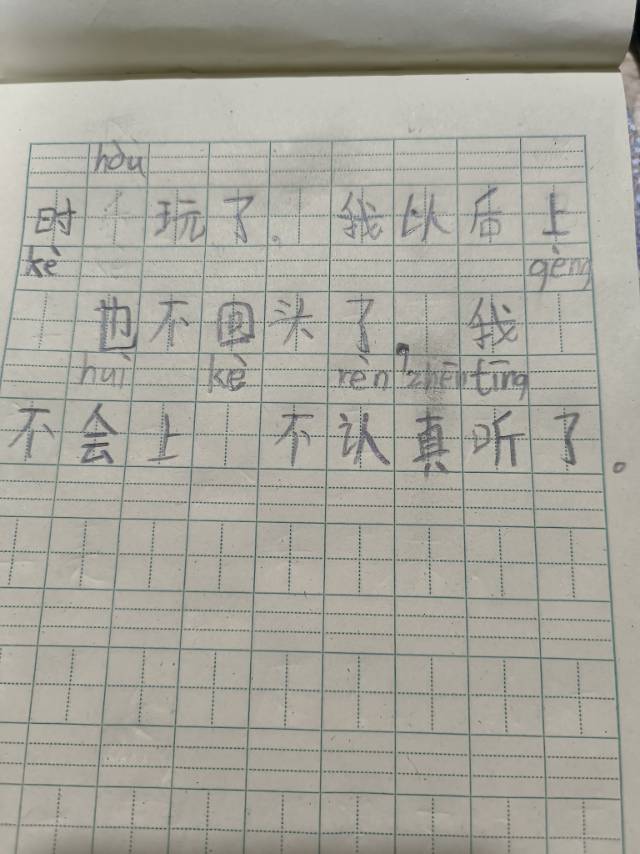 hòu
时 玩了。我以后上
kè gèng
也不回头了，我
huì kè rèn zhēn tīng
不会上 不认真听了。